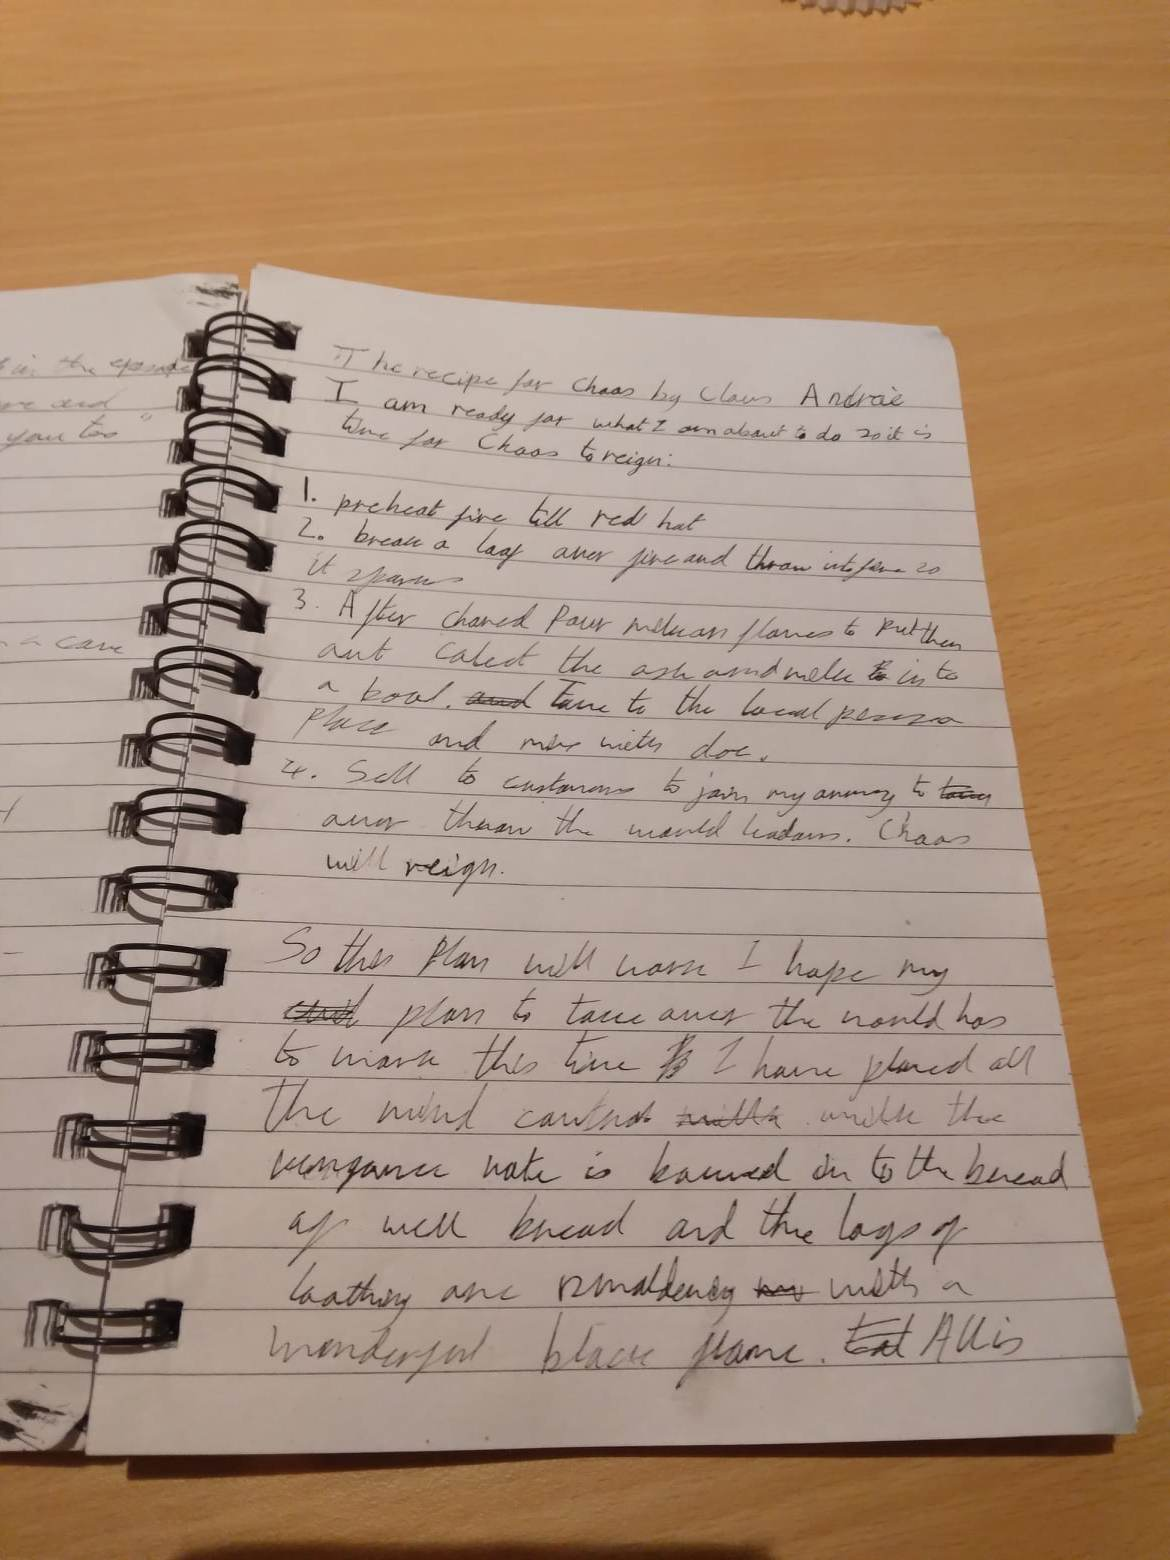 in the episode
and
you too"
a cave
The recipe for Chaos by Claus Andraè
I am ready for what I am about to do so it is
time for Chaos to reign:
1. preheat fire till red hot
2. break a loaf over fire and throw into fire so
it sparks
3. After chared Pour milk on flames to put them
out colect the ash and milk to in to
a bowl. and Take to the local pizza
place and mix with doe.
4. Sell to customers to join my army to
over throw the would leaders. Chaos
will reign.
So this Plan will work I hope my
evil plan to take over the would has
to work this time I have placed all
The mind control milk milk the
vengance note is bawed in to the bread
of well bread and the logs of
loathing are smoldering with a
wonderful black flame. All is